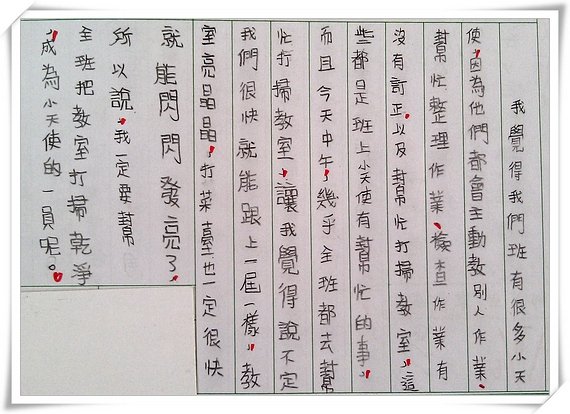 我覺得我們班有很多小天
使,因為他們都會主動教別人作業、
幫忙整理作業、檢查作業有
沒有訂正,以及幫忙打掃教室。這
些都是班上小天使有幫忙的事。
而且今天中午,幾乎全班都去幫
忙打掃教室,讓我覺得說不定
我們很快就能跟上一屆一樣,教
室亮晶晶,打菜臺也一定很快
就能閃閃發亮了。
所以說,我一定要幫
全班把教室打掃乾淨
,成為小天使的一員呢。